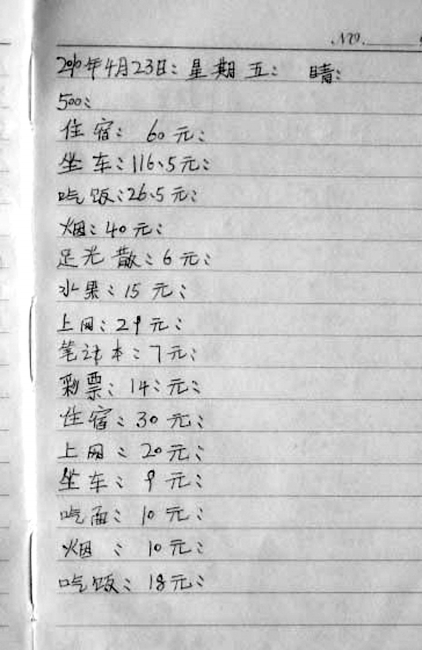 NO.
2010年4月23日：星期五： 晴：
500：
住宿： 60元：
坐车：116.5元：
吃饭：26.5元：
烟：40元：
足光散：6元：
水果：15元：
上网：29元：
笔记本：7元：
彩票：14：元：
住宿：30元：
上网：20元：
坐车：9元：
吃面：10元：
烟：10元：
吃饭：18元：